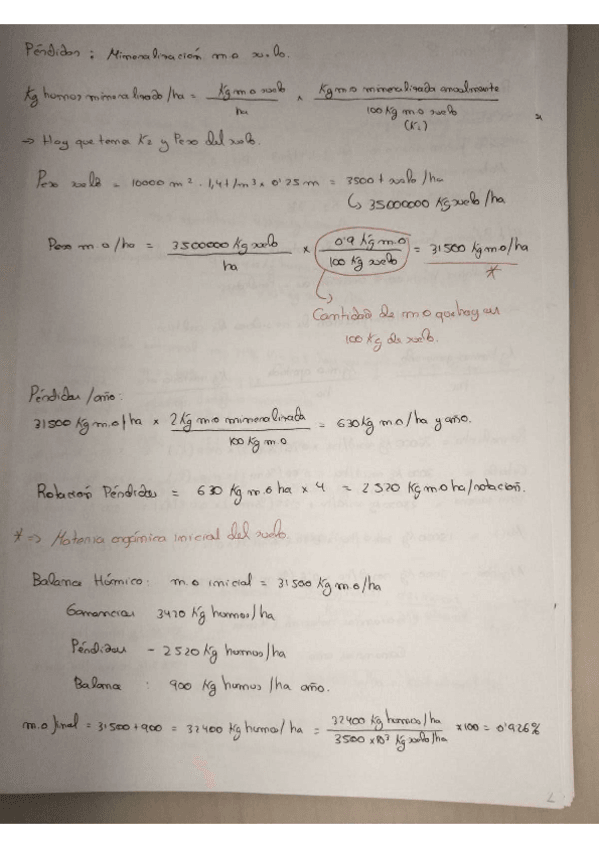 Pérdidas: Mineralización m.o suelo.
Kg humos mineralizado/ha = Kg m o suelo / ha × Kg m o mineralizada anualmente / 100 Kg m.o suelo (K₂)
→ Hay que tener K₂ y Peso del suelo.
Peso suelo = 10000 m² · 1,4 t/m³ × 0'25 m = 3500 t suelo/ha
↳ 35000000 Kg suelo/ha
Peso m.o/ha = 3500000 Kg suelo / ha × 0'9 Kg m.o / 100 Kg suelo = 31500 Kg m.o/ha
*
Cantidad de m o que hay en
100 Kg de suelo.
Pérdidas/año:
31500 Kg m.o/ha × 2 Kg m o mineralizada / 100 Kg m.o = 630 Kg m.o/ha y año.
Rotación Pérdidas = 630 Kg m.o ha × 4 = 2520 Kg m o ha/rotación.
* => Materia orgánica inicial del suelo
Balance Húmico: m.o inicial = 31500 Kg m.o/ha
Ganancias 3420 Kg humos/ha
Pérdidas - 2520 Kg humos/ha
Balance : 900 Kg humos /ha año.
m.o final = 31500 + 900 = 32400 Kg humos/ha = 32400 Kg humos/ha / 3500 × 10³ Kg suelo/ha × 100 = 0'926%